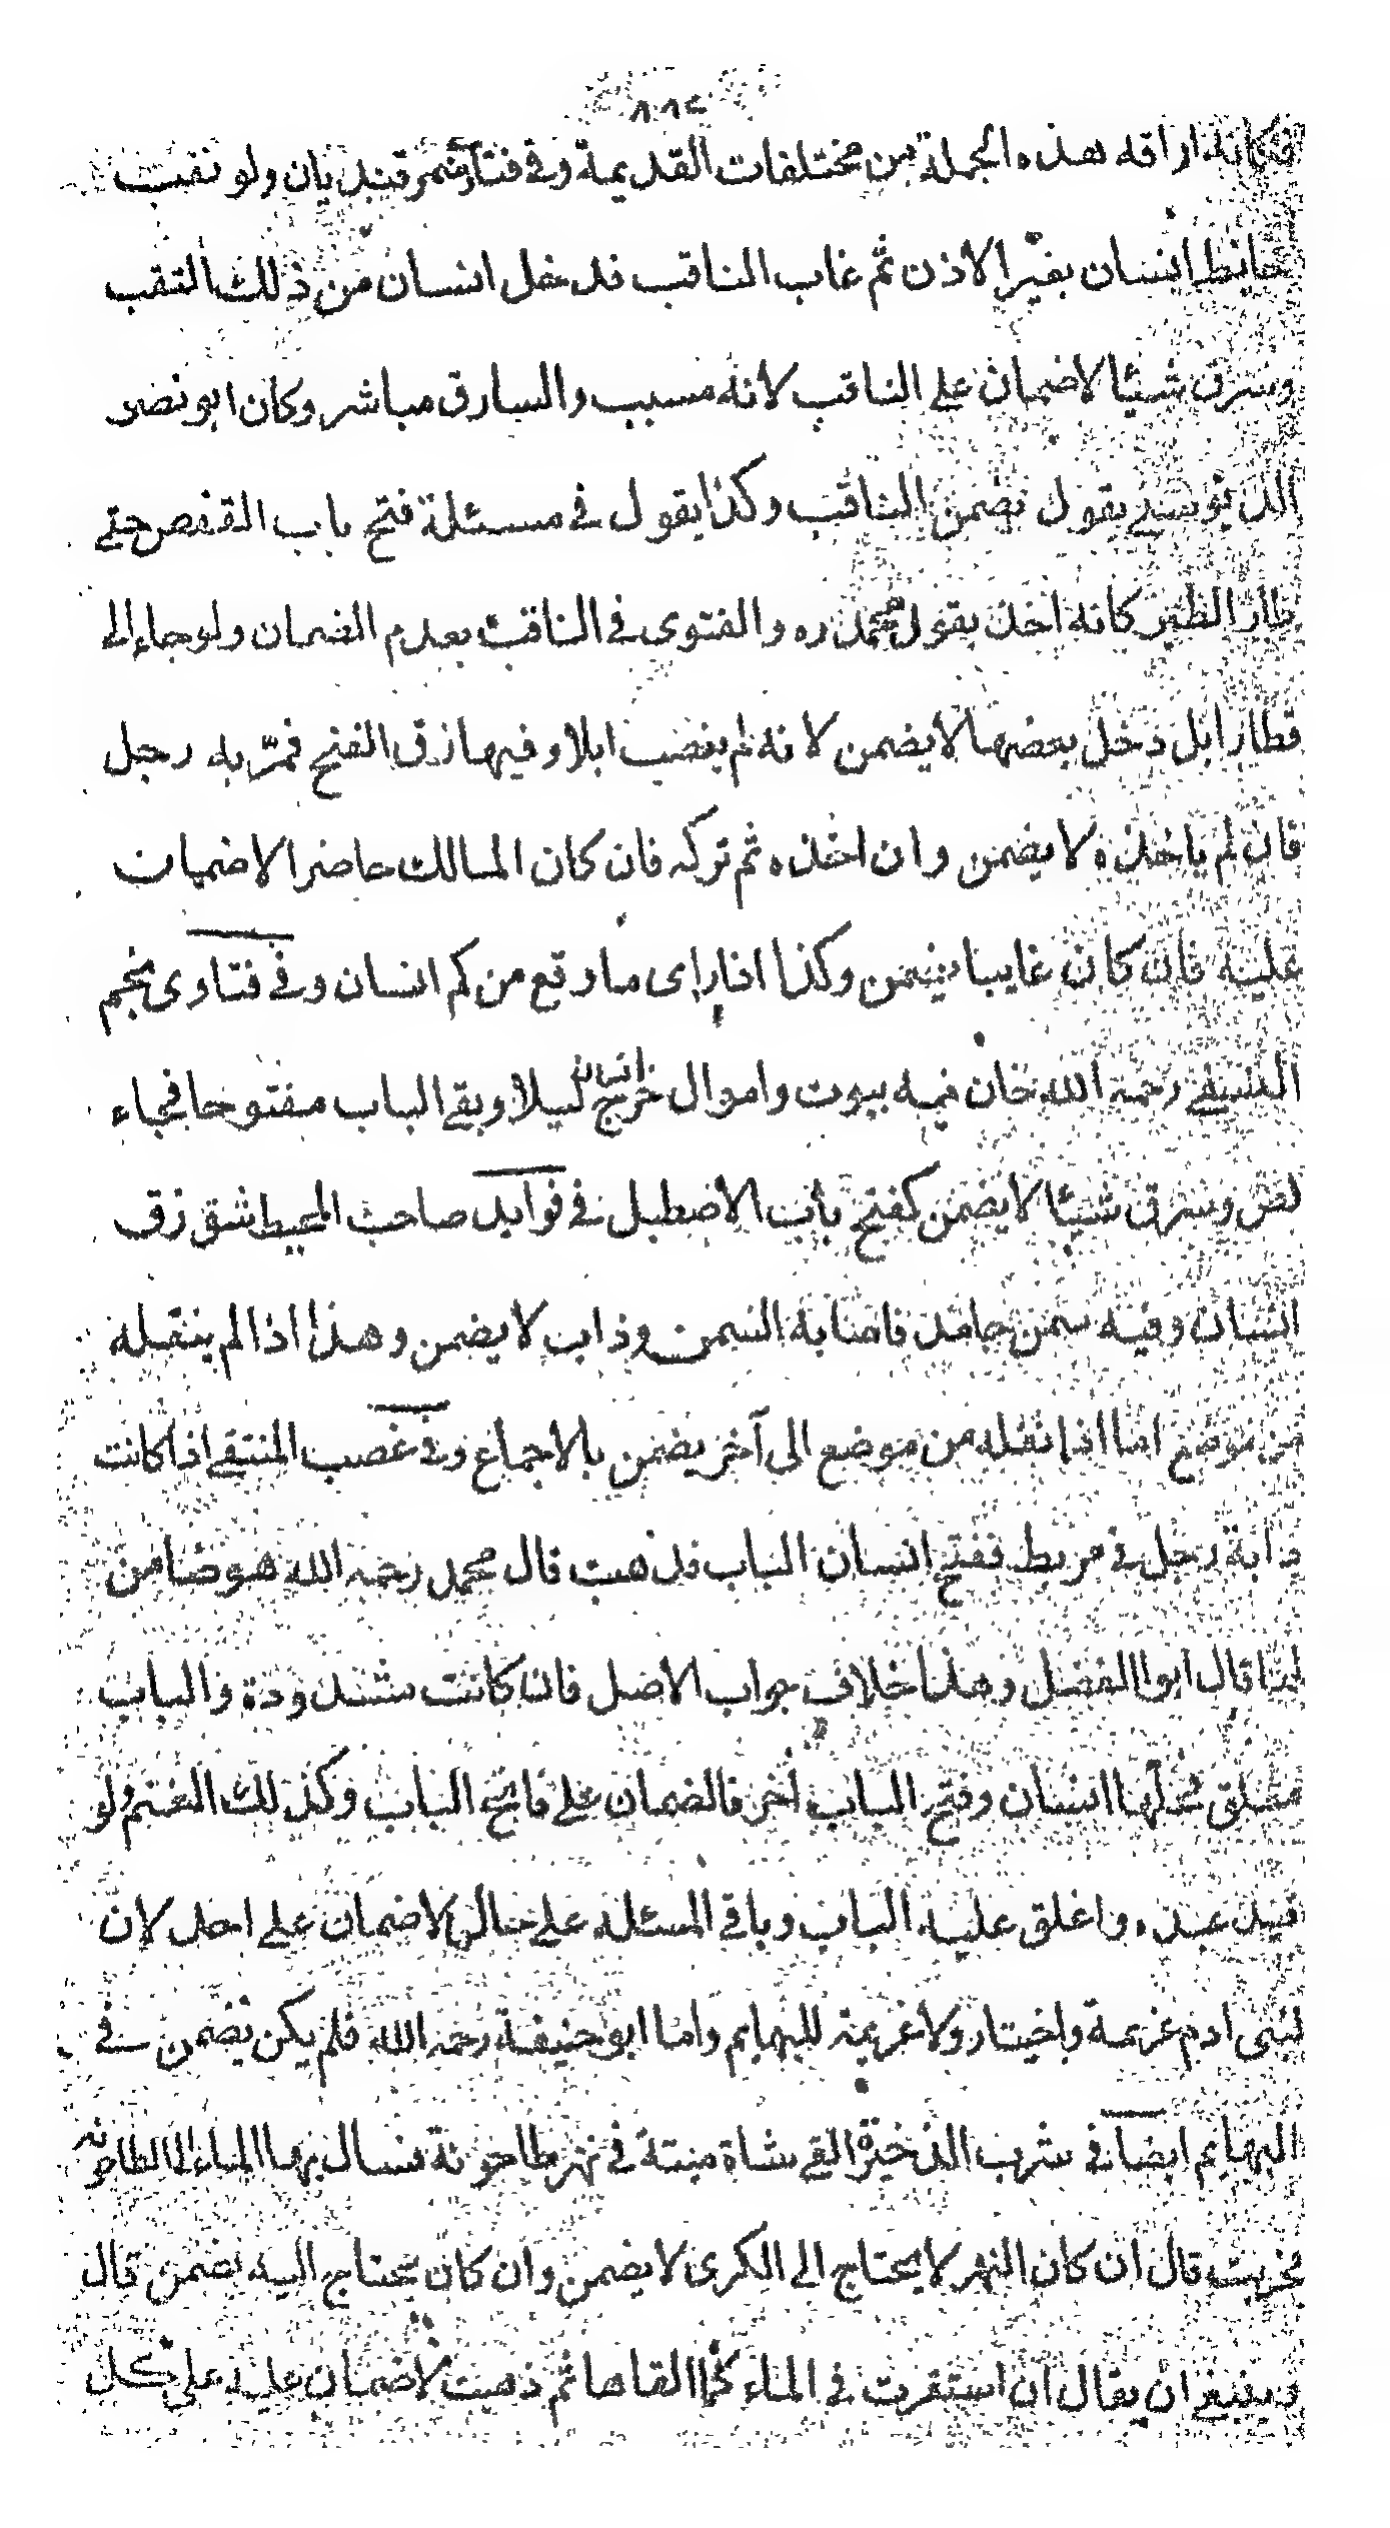 فكانه اراقه هذه الجملة من مختلفات القديمة وفي فتاوى سمرقنديان ولو نقب
حايط انسان بغير الاذن ثم غاب الناقب فدخل انسان من ذلك النقب
وسرق شيئا لا ضمان على الناقب لانه مسبب والسارق مباشر وكان ابو نصر
الدبوسي يقول يضمن الناقب وكذا يقول في مسئلة فتح باب القفص حتى
طار الطير كانه اخذ بقول محمد ره والفتوى في الناقب بعدم الضمان ولو جاء الى
قطار ابل دخل بعضها لا يضمن لانه لم يغصب ابلا وفيها زق الفتح فمرّ به رجل
فان لم ياخذه لا يضمن وان اخذه ثم تركه فان كان المالك حاضرا لا ضمان
عليه فان كان غايبا يضمن وكذا اذا راى ما وقع من كم انسان وفي فتاوى نجم
النسفي رحمة الله خان فيه بيوت واموال خرج انسان ليلا وبقي الباب مفتوحا فجاء
لص وسرق شيئا لا يضمن كفتح باب الاصطبل في فوايد صاحب المحيط شق زق
انسان وفيه سمن جامد فاصابه الشمس وذاب لا يضمن وهذا اذا لم ينقله
من موضع اما اذا نقله من موضع الى آخر يضمن بالاجماع وفي غصب المنتقى اذا كانت
دابة رجل في مربط ففتح انسان الباب فذهبت قال محمد رحمه الله هو ضامن
لها قال ابو الفضل وهذا خلاف جواب الاصل فان كانت مشدودة والباب
مغلق فحلها انسان وفتح الباب اخر فالضمان على فاتح الباب وكذلك الغنم ولو
قيد عبده واغلق عليه الباب وباقي المسئلة على حاله لا ضمان على احد لان
لبنى ادم عزيمة واختيار ولا عزيمة للبهايم واما ابو حنيفة رحمه الله فلم يكن يضمن في
البهايم ايضا في شرب الذخيرة القى شاة ميتة في نهر طاحونة فسال بها الماء الى الطاحونه
فخربت قال ان كان النهر لا يحتاج الى الكرى لا يضمن وان كان يحتاج اليه يضمن قال
وينبغي ان يقال ان استقرت في الماء كما القاها ثم ذهبت لا ضمان عليه على كل